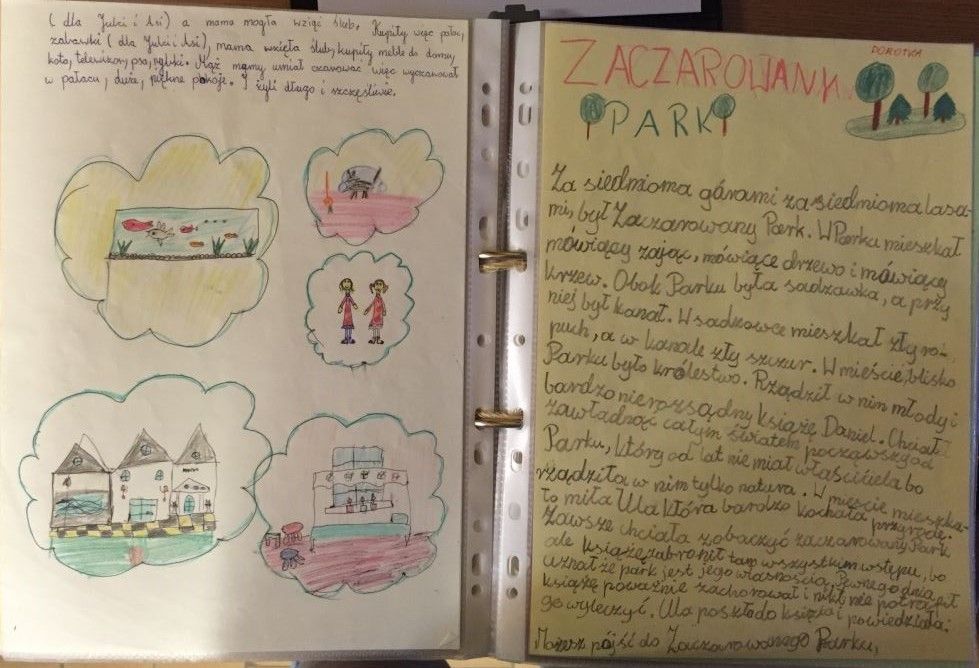 ( dla Julci i Asi) a mama mogła wziąć ślub. Kupiły więc pałac,
zabawki ( dla Julci i Asi), mama wzięła ślub, kupiły meble do domu,
kota, telewizor, psa, rybki. Mąż mamy, umiał czarować więc wyczarował
w pałacu, duże, piękne pokoje. I żyli długo i szczęśliwie.
DOROTKA
ZACZAROWANY
PARK
Za siedmioma górami za siedmioma lasa-
mi, był Zaczarowany Park. W Parku mieszkał
mówiący zając, mówiące drzewo i mówiący
krzew. Obok Parku była sadzawka, a przy
niej był kanał. W sadzawce mieszkał zły ro-
puch, a w kanale zły szczur. W mieście, blisko
Parku było królestwo. Rządził w nim młody i
bardzo nierozsądny książę Daniel. Chciał
zawładnąć całym światem począwszy od
Parku, który od lat nie miał właściciela bo
rządziła w nim tylko natura. W mieście mieszka-
ło miła Ula która bardzo kochała przyrodę.
Zawsze chciała zobaczyć zaczarowany Park
ale książę zabronił tam wszystkim wstępu, bo
uznał że park jest jego własnością. Pewnego dnia
książę poważnie zachorował i nikt nie potrafił
go wyleczyć. Ula poszła do księcia i powiedziała:
Możesz pójść do Zaczarowanego Parku,